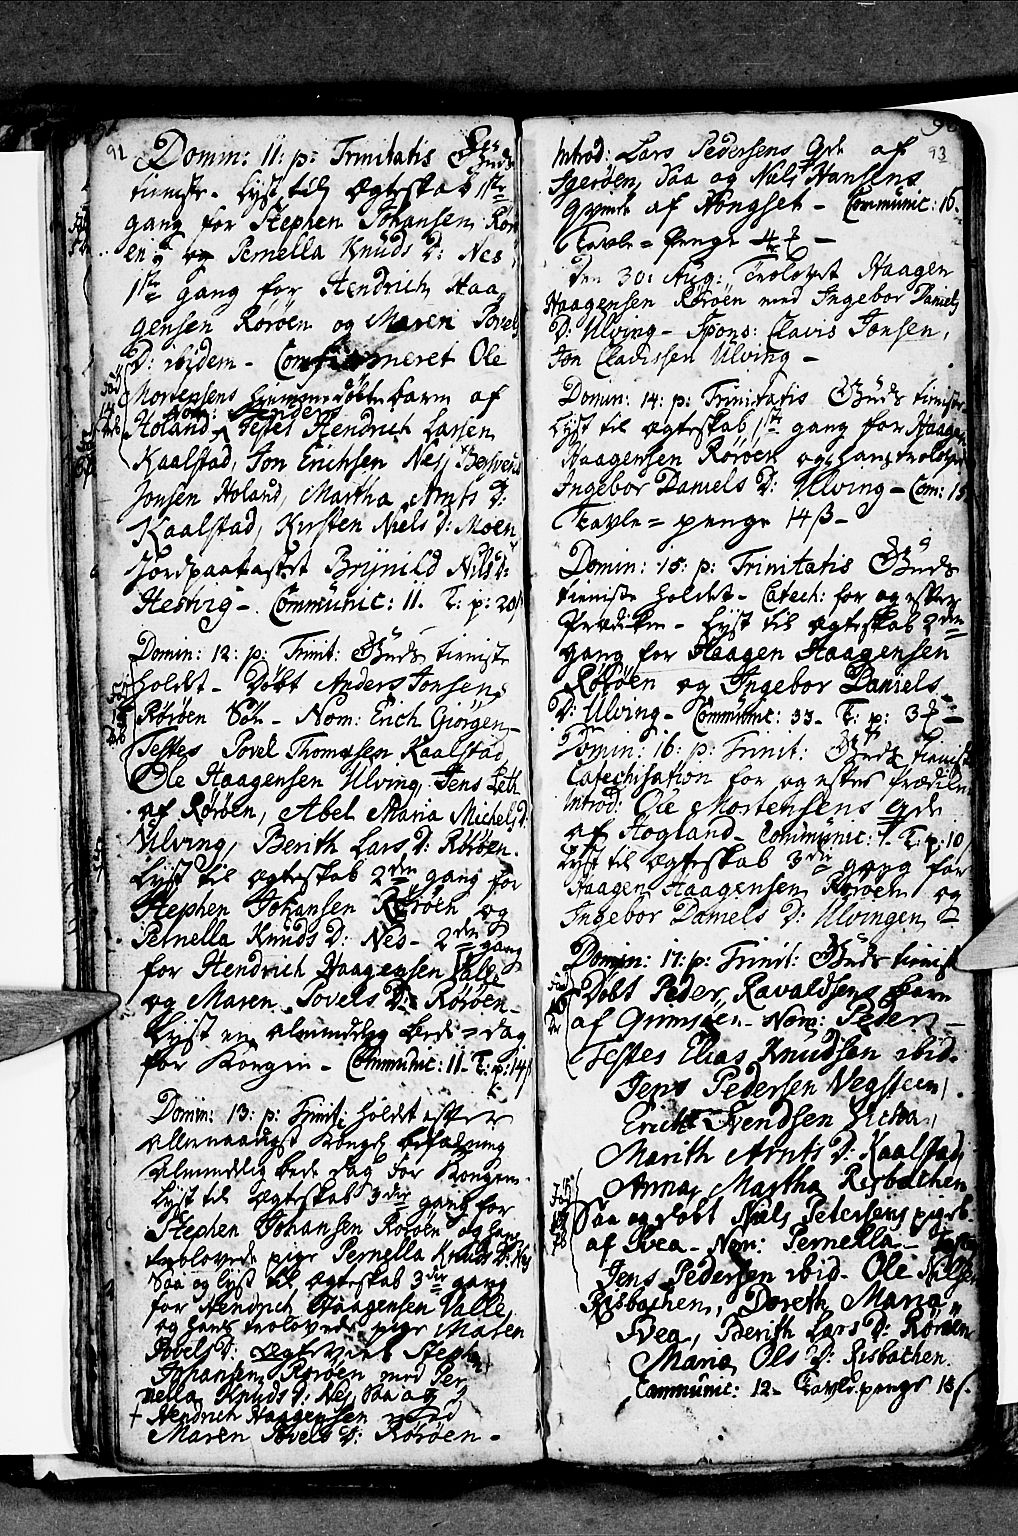 92
Domin: 11: p: Trinitatis Guds
tieniste. Lyst til Ægteskab 1ste
gang for Stephen Johansen Rør
en og Pernella Knuds D: Nes,
1ste gang for Hendrich Haa
gensen Rørøen og Maren Povels
D: ibidem – Confirmeret Ole
Mortensens hiemmedøbte barn af
Nom: Anders
Holand, Testes Hendrich Larsen
Kaalstad, Jon Erichsen Nes,
Jonsen Holand, Martha Arnts D:
Kaalstad, Kirsten Niels D: Moen,
Jordpaakastet Brynild Nils D:
Hestvig – Communic: 11. T: p: 20
Domin: 12: p: Trinit: Guds tieniste
holdet – Døbt Anders Jonsens
Rørøen Søn – Nom: Erich Giørgen –
Testes Povel Thomæsen Kaalstad,
Ole Haagensen Ulving, Jens
af Rørøen, Abel Maria Michels D:
Ulving, Berith Lars D: Rørøen.
Lyst til Ægteskab 2den gang for
Stephen Johansen Rørøen og
Pernella Knuds D: Nes – 2den gang
for Hendrich Haagensen Valle
og Maren Povels D: Rørøen –
Lyst en almindelig bede = dag
for Kongen – Communic: 11 – T: p: 14
Domin: 13: p: Trinit: holdet efter
Allernaadigst Kongel: befalning
Almindelig bede dag for Kongen.
Lyst til Ægteskab 3die gang for
Stephen Johansen Rørøen og hans
trolovede pige Pernella Knuds D: Nes
Saa og lyst til ægteskab 3die gang
for Hendrich Haagensen Valle,
og hans trolovede pige Maren
Povels D: Ægteviet Stephen
Johansen Rørøen med Per
nella Knuds D: Nes, Saa og
† Hendrich Haagensen med
Maren Povels D: Rørøen –
93
Introd: Lars Pedersens Qde af
Igerøen, Saa og Niels Hansens
Qvinde af Hongset – Communic: 16
Tavle = Penge 4
den 30: Aug: Trolovet Haagen
Haagensen Rørøen med Ingebor Daniels
D: Ulving – Spons: Clavis Jonsen,
Jon Cladissen Ulving –
Domin: 14: p: Trinitatis Guds tieniste
Lyst til ægteskab 1ste gang for Haagen
Haagensen Rørøen og hans trolovede
Ingebor Daniels D: Ulving – Com: 15
Tavle = penge 14 β –
Domin: 15: p: Trinitatis Guds
tieniste holdet – Catech: for og efter
Prædiken – Lyst til ægteskab 2den
gang for Haagen Haagensen
Rørøen og Ingebor Daniels
D: Ulving – Communic: 33 – T: p: 3
Domin: 16: p: Trinit: Guds tieniste
Catechisation for og efter Prædiken
Introd: Ole Mortensens Qde
af Hogland – Communic: 7. T: p: 10
Lyst til ægteskab 3die gang for
Haagen Haagensen Rørøen og
Ingebor Daniels D: Ulvingen
Domin: 17: p: Trinit: Guds tienist
Døbt Peder Ravaldsens Barn
af Grimsøen – Nom: Peder –
Testes Elias Knudsen ibid –
Jens Pedersen Vegsteen,
Erich Svendsen Vicha,
Marith Arnts D: Kaalstad,
Anna Martha Risbachen
Saa og døbt Niels Petersens pigeb.
af Svea – Nom: Pernella – Testes
Jens Pedersen ibid – Ole Nilsen
Risbachen, Doreth Maria
Svea, Berith Lars D: Rørøen
Maria Ols D: Risbachen.
Communic: 12 – Tavlepenge 18 β.